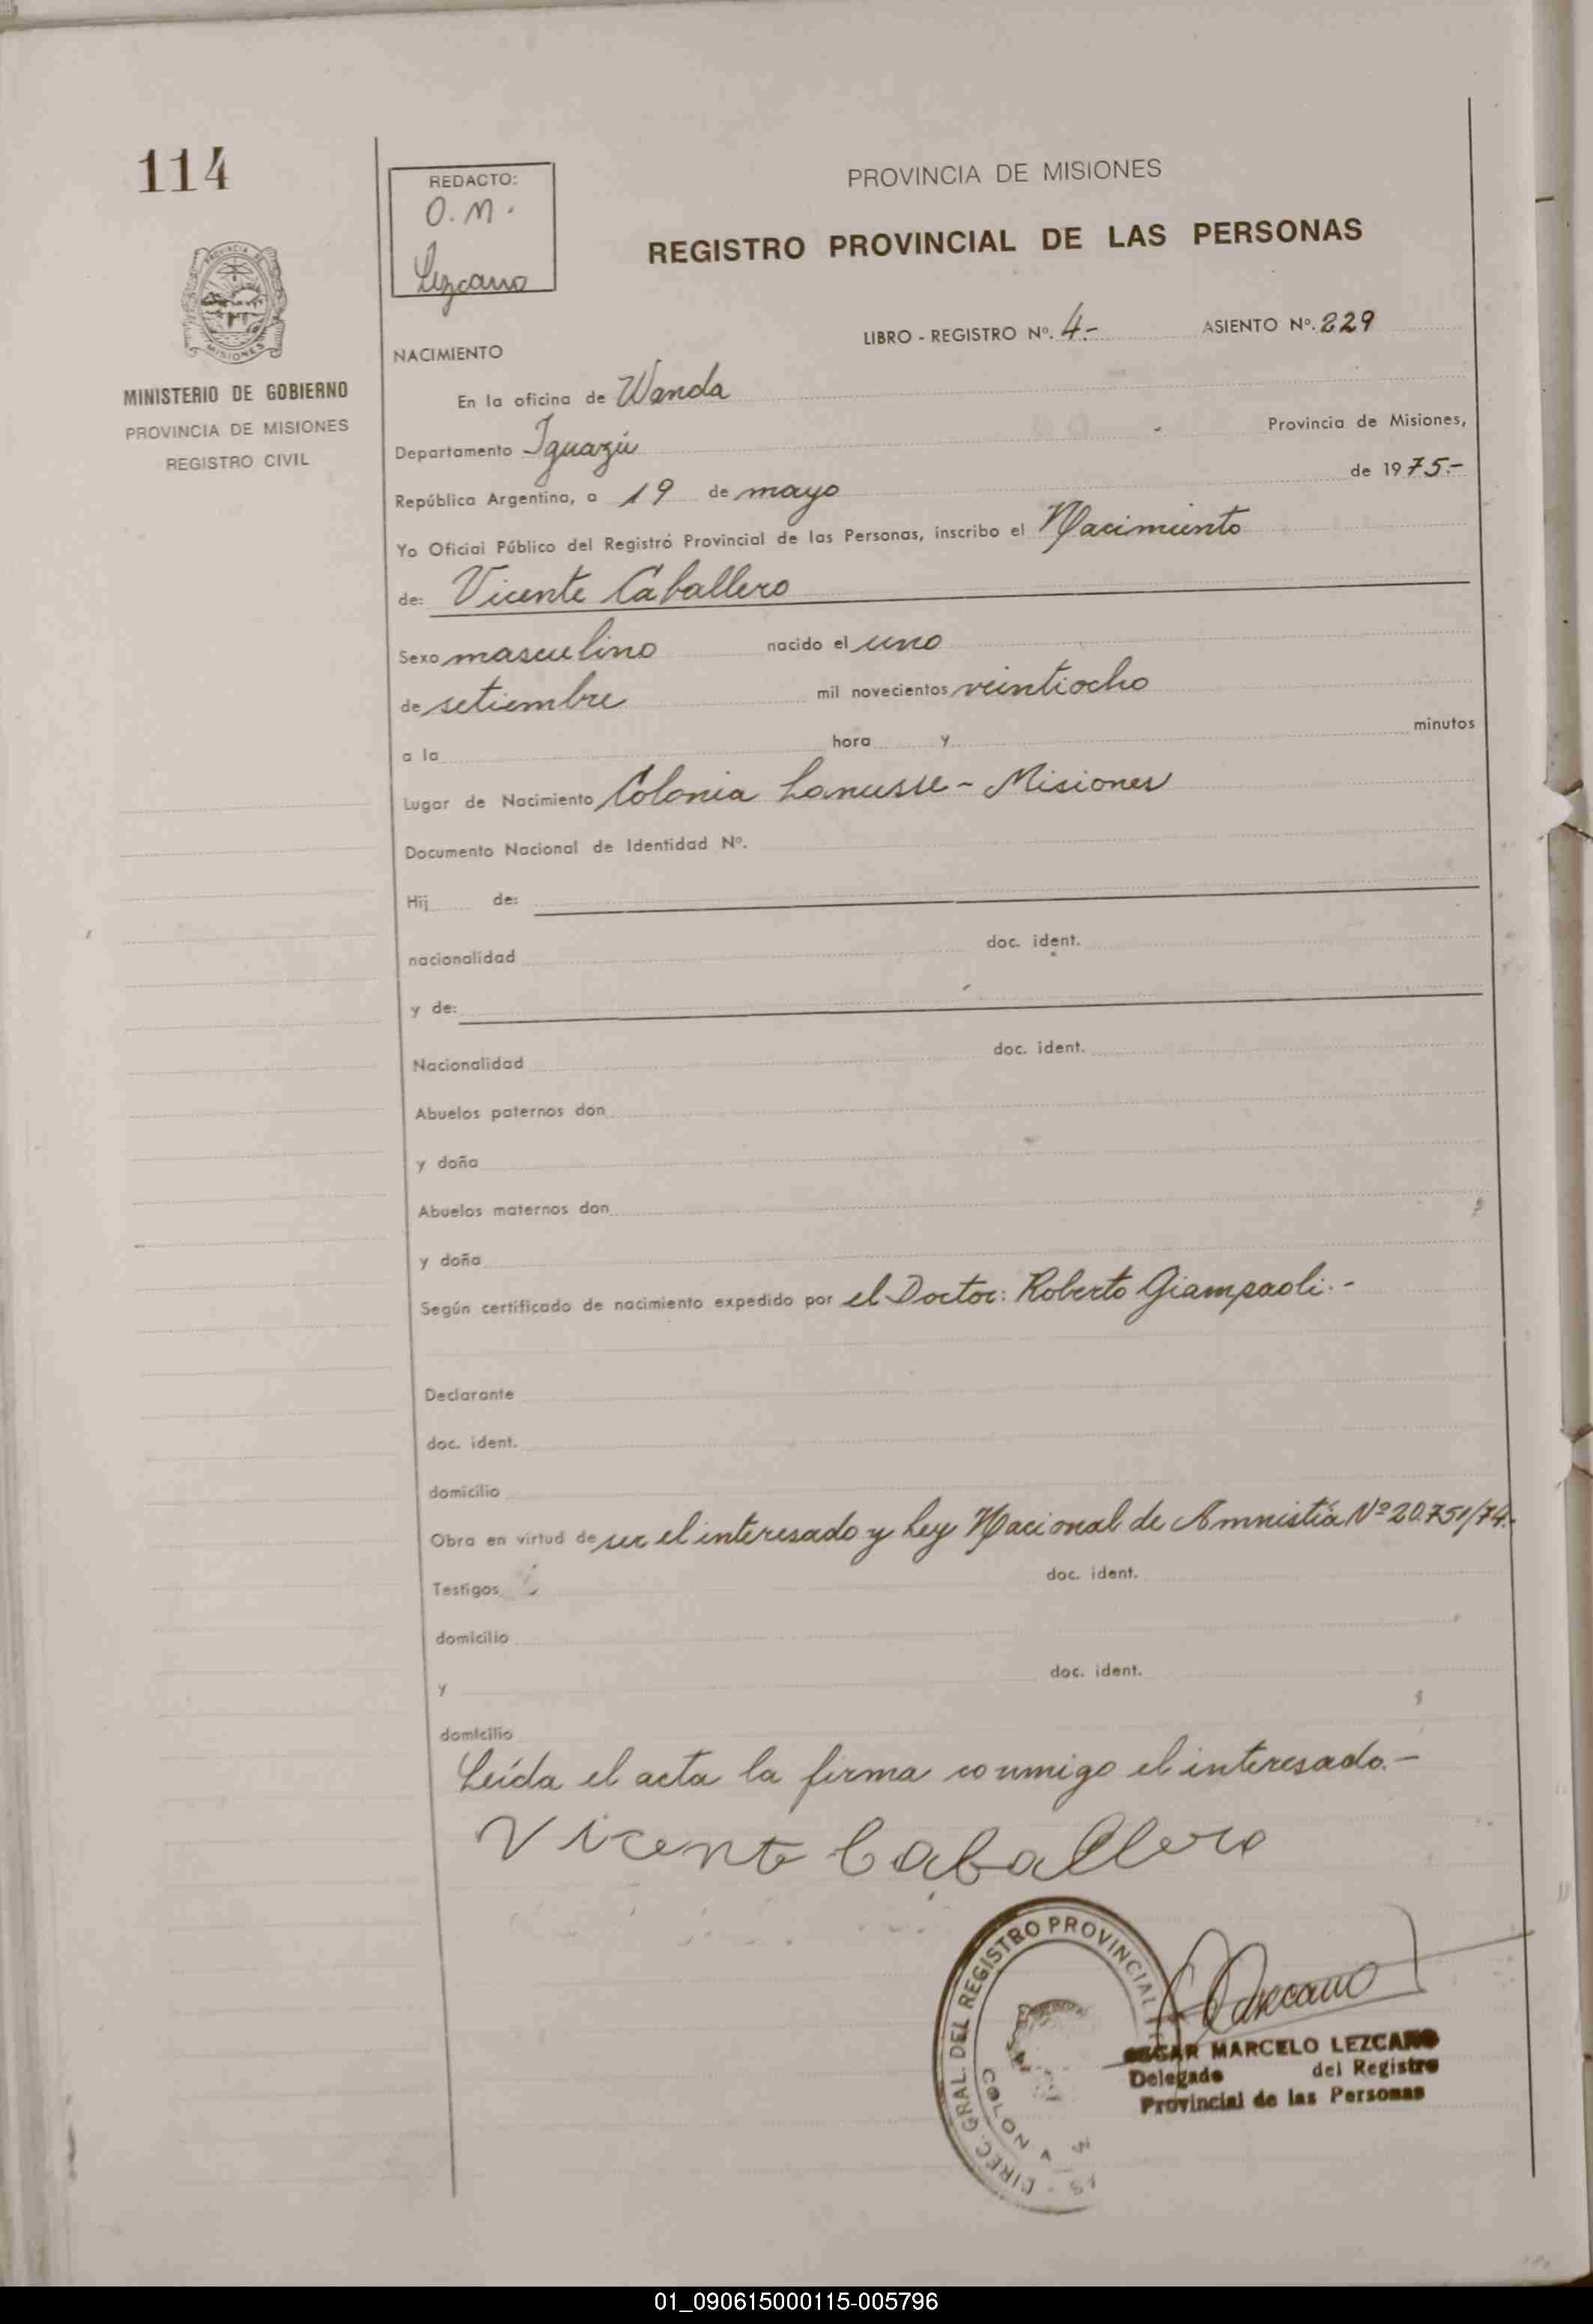 114
REDACTO:
O. M.
Lezcano
PROVINCIA DE MISIONES
REGISTRO PROVINCIAL DE LAS PERSONAS
PROVINCIA DE
MISIONES
MINISTERIO DE GOBIERNO
PROVINCIA DE MISIONES
REGISTRO CIVIL
LIBRO - REGISTRO Nº. 4.- ASIENTO Nº. 229
NACIMIENTO
En la oficina de Wanda
Departamento Iguazú Provincia de Misiones,
República Argentina, a 19 de mayo de 1975.-
Yo Oficial Público del Registro Provincial de las Personas, inscribo el Nacimiento
de: Vicente Caballero
Sexo masculino nacido el uno
de setiembre mil novecientos veintiocho
a la hora y minutos
Lugar de Nacimiento Colonia Lanusse - Misiones
Documento Nacional de Identidad Nº.
Hij de:
nacionalidad doc. ident.
y de:
Nacionalidad doc. ident.
Abuelos paternos don
y doña
Abuelos maternos don
y doña
Según certificado de nacimiento expedido por el Doctor: Roberto Giampaoli.-
Declarante
doc. ident.
domicilio
Obra en virtud de ser el interesado y Ley Nacional de Amnistía Nº 20.751/74.-
Testigos doc. ident.
domicilio
y doc. ident.
domicilio
Leída el acta la firma conmigo el interesado.-
Vicente Caballero
DIREC. GRAL. DEL REGISTRO PROVINCIAL
COLONIA
Lezcano
MARCELO LEZCANO
Delegado del Registro
Provincial de las Personas
01_090615000115-005796